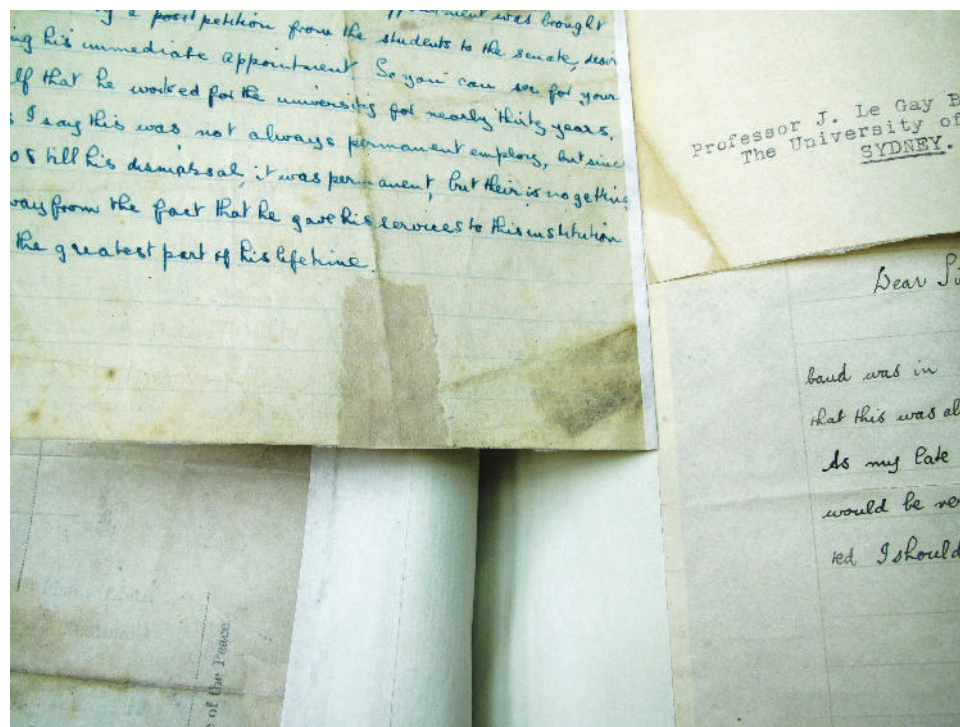 a postpetition from the students to the senate, desir
ng his immediate appointment. So you can see for your
lf that he worked for the university for nearly thirty years.
I say this was not always permanent employ, but since
till his dismassal, it was permanent, but their is no getting
way from the fact that he gave his services to this institution
the greatest part of his lifetime.
Professor J. Le Gay B
The University of
SYDNEY.
Dear Si
band was in
that this was al
As my late
would be ver
red I should
e of the Peace